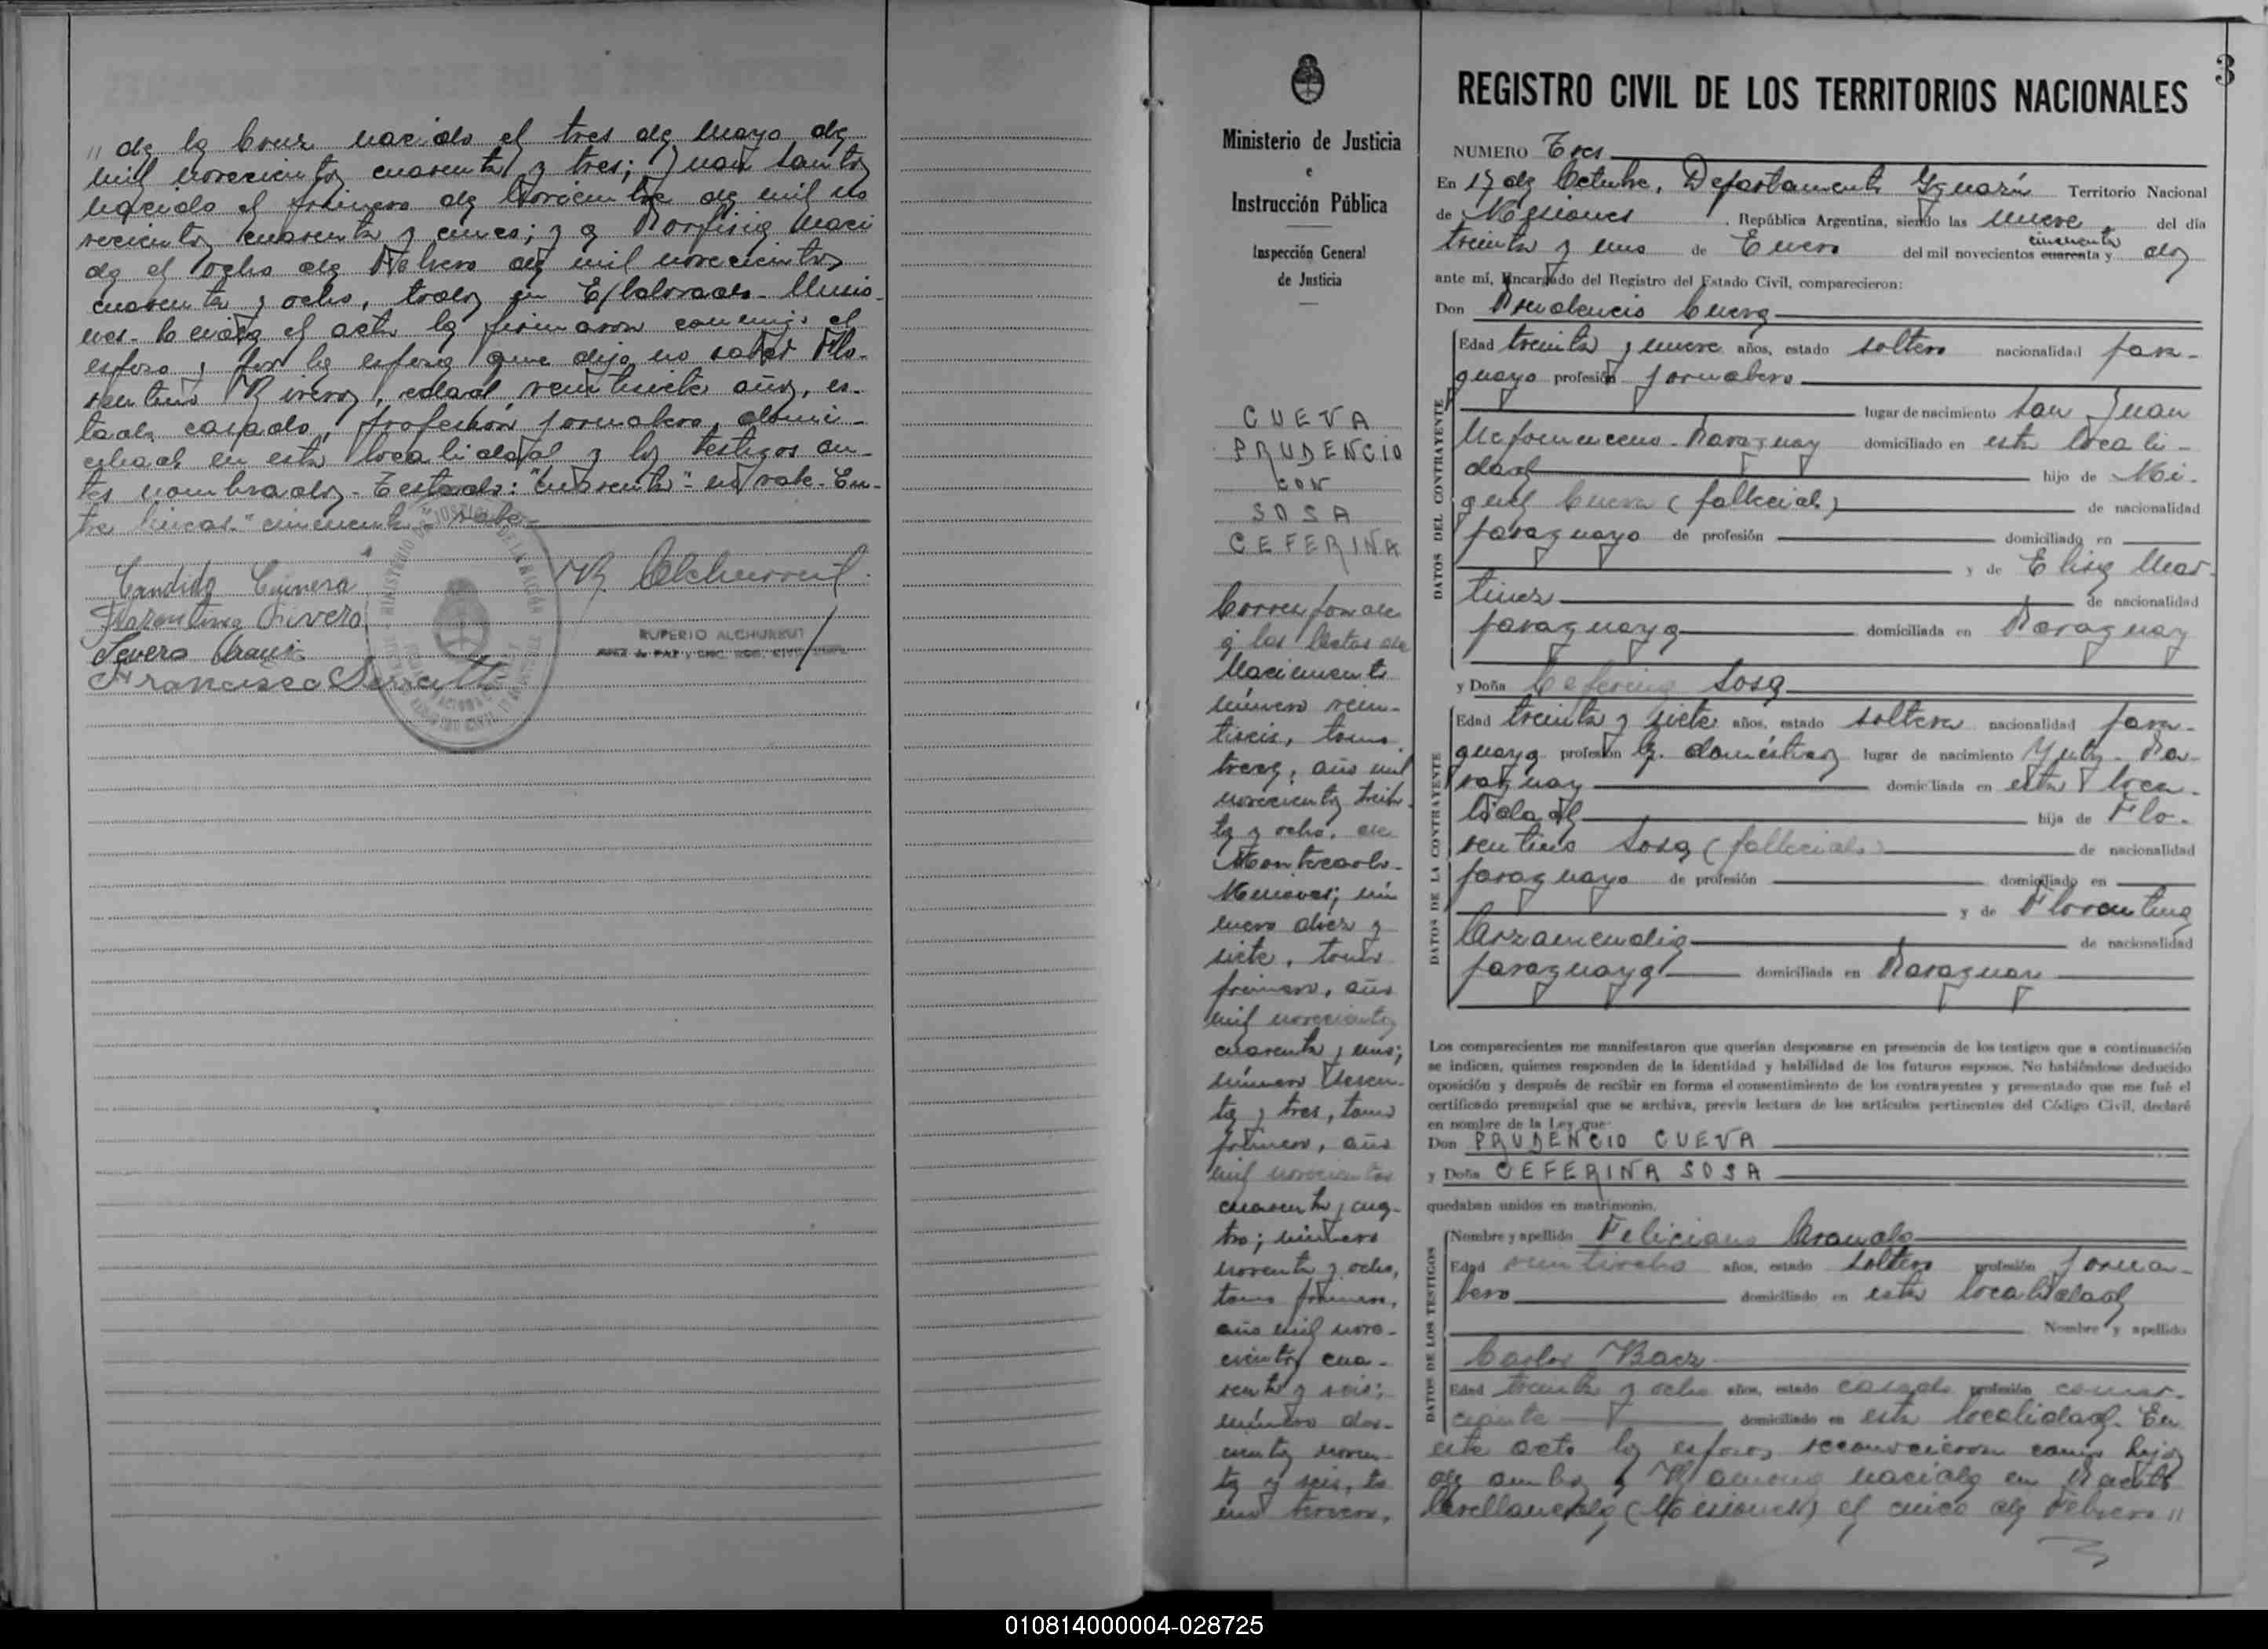 " de la Cruz nacido el tres de Mayo de
mil novecientos cuarenta y tres; Juan Santos
nacido el primero de Noviembre de mil no
vecientos cuarenta y cinco; y a Porfiria naci
da el ocho de Febrero de mil novecientos
cuarenta y ocho, todos en Eldorado - Misio-
nes. Leída el acta la firmaron conmigo el
esposo y por la esposa que dijo no saber Flo-
rentino Rivero, edad veintisiete años, es-
tado casado, profesión jornalero, domici-
liado en esta localidad y los testigos an-
tes nombrados. Testado: "cuarenta" no vale. En-
tre líneas "cincuenta" vale
Severo
Francisco
R Alchurrut
RUPERIO ALCHURRUT
JUEZ de PAZ y ENC. REG. CIVIL
Ministerio de Justicia
e
Instrucción Pública
Inspección General
de Justicia
CUEVA
PRUDENCIO
CON
SOSA
CEFERINA
Corresponde
a las Actas de
Nacimiento
número vein-
tiseis, tomo
año mil
novecientos trein-
ta y ocho, de
Montecarlo -
Misiones; nú
mero diez y
siete, tomo
primero, año
mil novecientos
cuarenta y uno;
número sesen-
ta y tres, tomo
primero, año
mil novecientos
cuarenta y cua-
tro; número
noventa y ocho,
tomo primero,
año mil nove-
cientos cua-
renta y seis;
número dos-
cientos noven-
ta y seis, to
mo tercero,
3
REGISTRO CIVIL DE LOS TERRITORIOS NACIONALES
NUMERO Tres
En 17 de Octubre, Departamento Iguazú Territorio Nacional
de Misiones República Argentina, siendo las nueve del día
treinta y uno de Enero del mil novecientos cuarenta y cincuenta dos
ante mí, Encargado del Registro del Estado Civil, comparecieron:
Don Prudencio Cueva
DATOS DEL CONTRAYENTE
Edad treinta y nueve años, estado soltero nacionalidad para-
guayo profesión jornalero
lugar de nacimiento San Juan
Nepomuceno - Paraguay domiciliado en esta locali-
dad hijo de Mi-
guel Cueva (fallecido) de nacionalidad
paraguayo de profesión domiciliado en
y de Elisa Mar-
tinez de nacionalidad
paraguaya domiciliada en Paraguay
y Doña Ceferina Sosa
DATOS DE LA CONTRAYENTE
Edad treinta y siete años, estado soltera nacionalidad para-
guaya profesión q. domésticos lugar de nacimiento Yuty - Pa-
raguay domiciliada en esta loca-
lidad hija de Flo-
rentino Sosa (fallecido) de nacionalidad
paraguayo de profesión domiciliado en
y de Florentina
Arzamendia de nacionalidad
paraguaya domiciliada en Paraguay
Los comparecientes me manifestaron que querían desposarse en presencia de los testigos que a continuación
se indican, quienes responden de la identidad y habilidad de los futuros esposos. No habiéndose deducido
oposición y después de recibir en forma el consentimiento de los contrayentes y presentado que me fué el
certificado prenupcial que se archiva, previa lectura de los artículos pertinentes del Código Civil, declaré
en nombre de la Ley que:
Don PRUDENCIO CUEVA
y Doña CEFERINA SOSA
quedaban unidos en matrimonio.
DATOS DE LOS TESTIGOS
Nombre y apellido Feliciano Aranda
Edad veintiocho años, estado soltero profesión jorna-
lero domiciliado en esta localidad
Nombre y apellido
Carlos Baez
Edad treinta y ocho años, estado casado profesión comer-
ciante domiciliado en esta localidad. En
este acto los esposos reconocieron como hijos
de ambos a Ramona nacida en Pueblo
Avellaneda (Misiones) el cinco de Febrero "
010814000004-028725